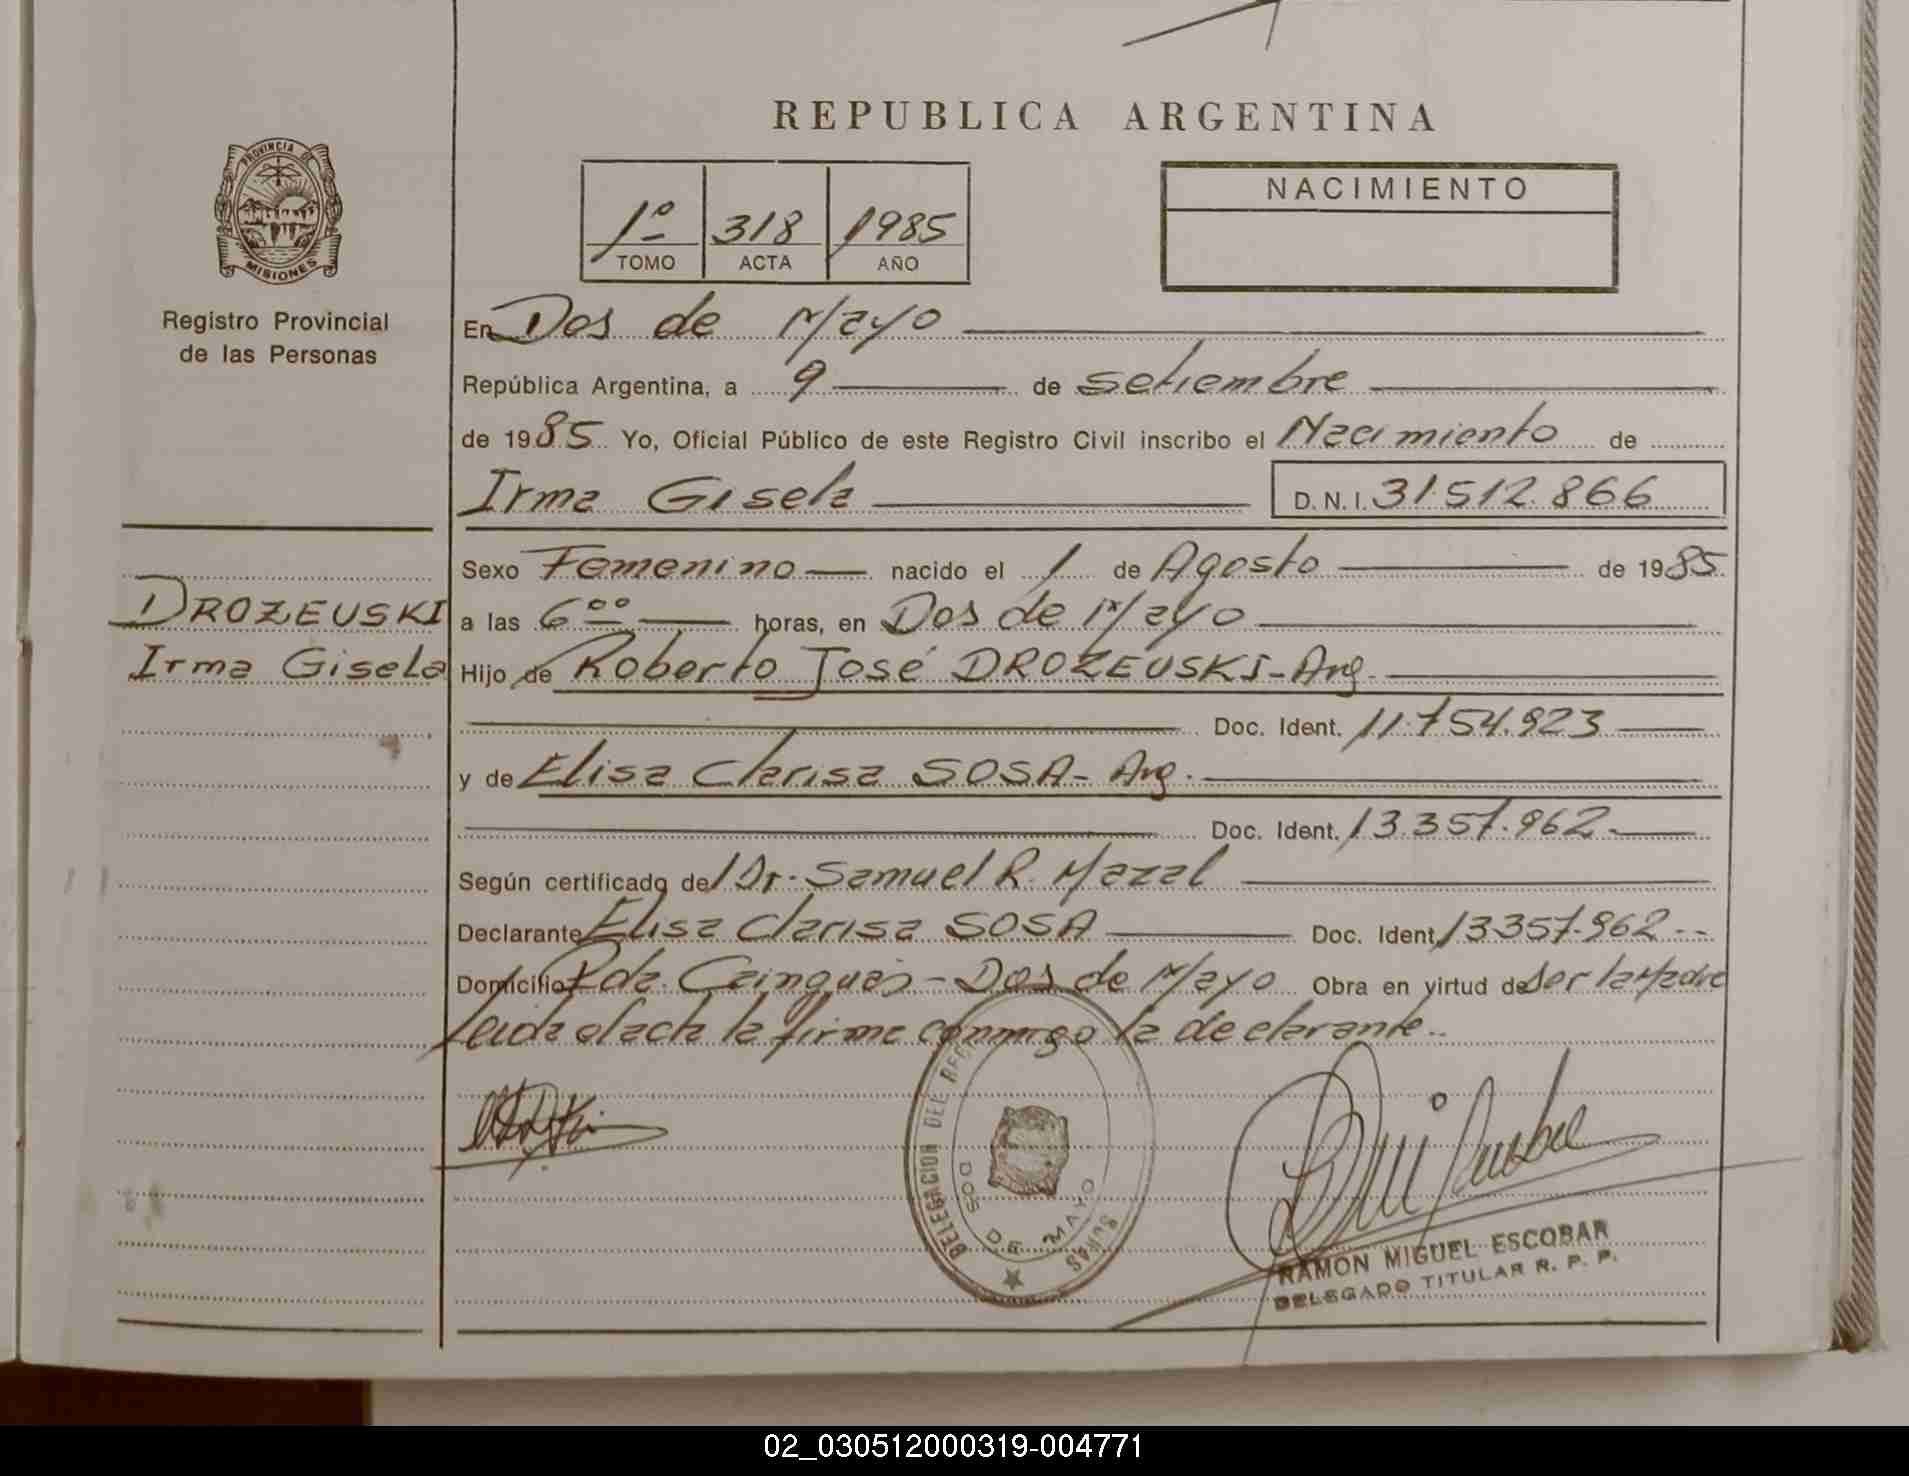 REPUBLICA ARGENTINA
PROVINCIA DE
MISIONES
Registro Provincial
de las Personas
1º 318 1985
TOMO ACTA AÑO
NACIMIENTO
En Dos de Mayo
República Argentina, a 9 de setiembre
de 1985 Yo, Oficial Público de este Registro Civil inscribo el Nacimiento de
Irma Gisela D.N.I. 31.512.866
Sexo Femenino nacido el 1 de Agosto de 1985
DROZEUSKI
Irma Gisela
a las 6 00 horas, en Dos de Mayo
Hijo de Roberto José DROZEUSKI - Arg.
Doc. Ident. 11.754.923
y de Elisa Clarisa SOSA - Arg.
Doc. Ident. 13.357.962
Según certificado del Dr. Samuel R. Mazal
Declarante Elisa Clarisa SOSA Doc. Ident 13357.962
Domicilio Pda. Cainguas - Dos de Mayo Obra en virtud de ser la Madre
Leida el acta la firma conmigo la declarante..
DELEGACION DEL
DOS DE MAYO
RAMON MIGUEL ESCOBAR
DELEGADO TITULAR R. P. P.
02_030512000319-004771